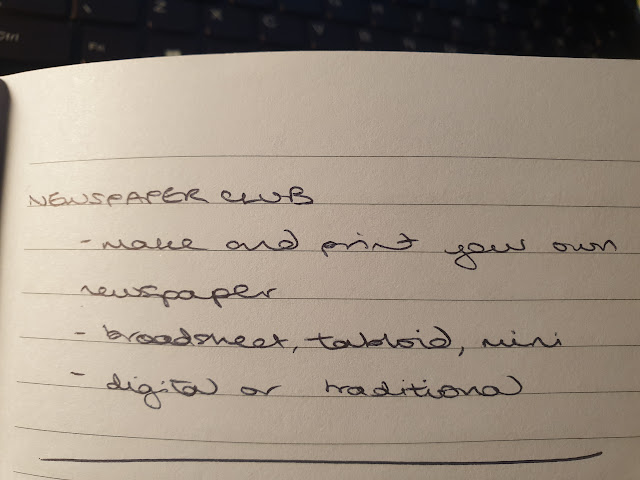 NEWSPAPER CLUB
- make and print your own
newspaper
- broadsheet, tabloid, mini
- digital or traditional